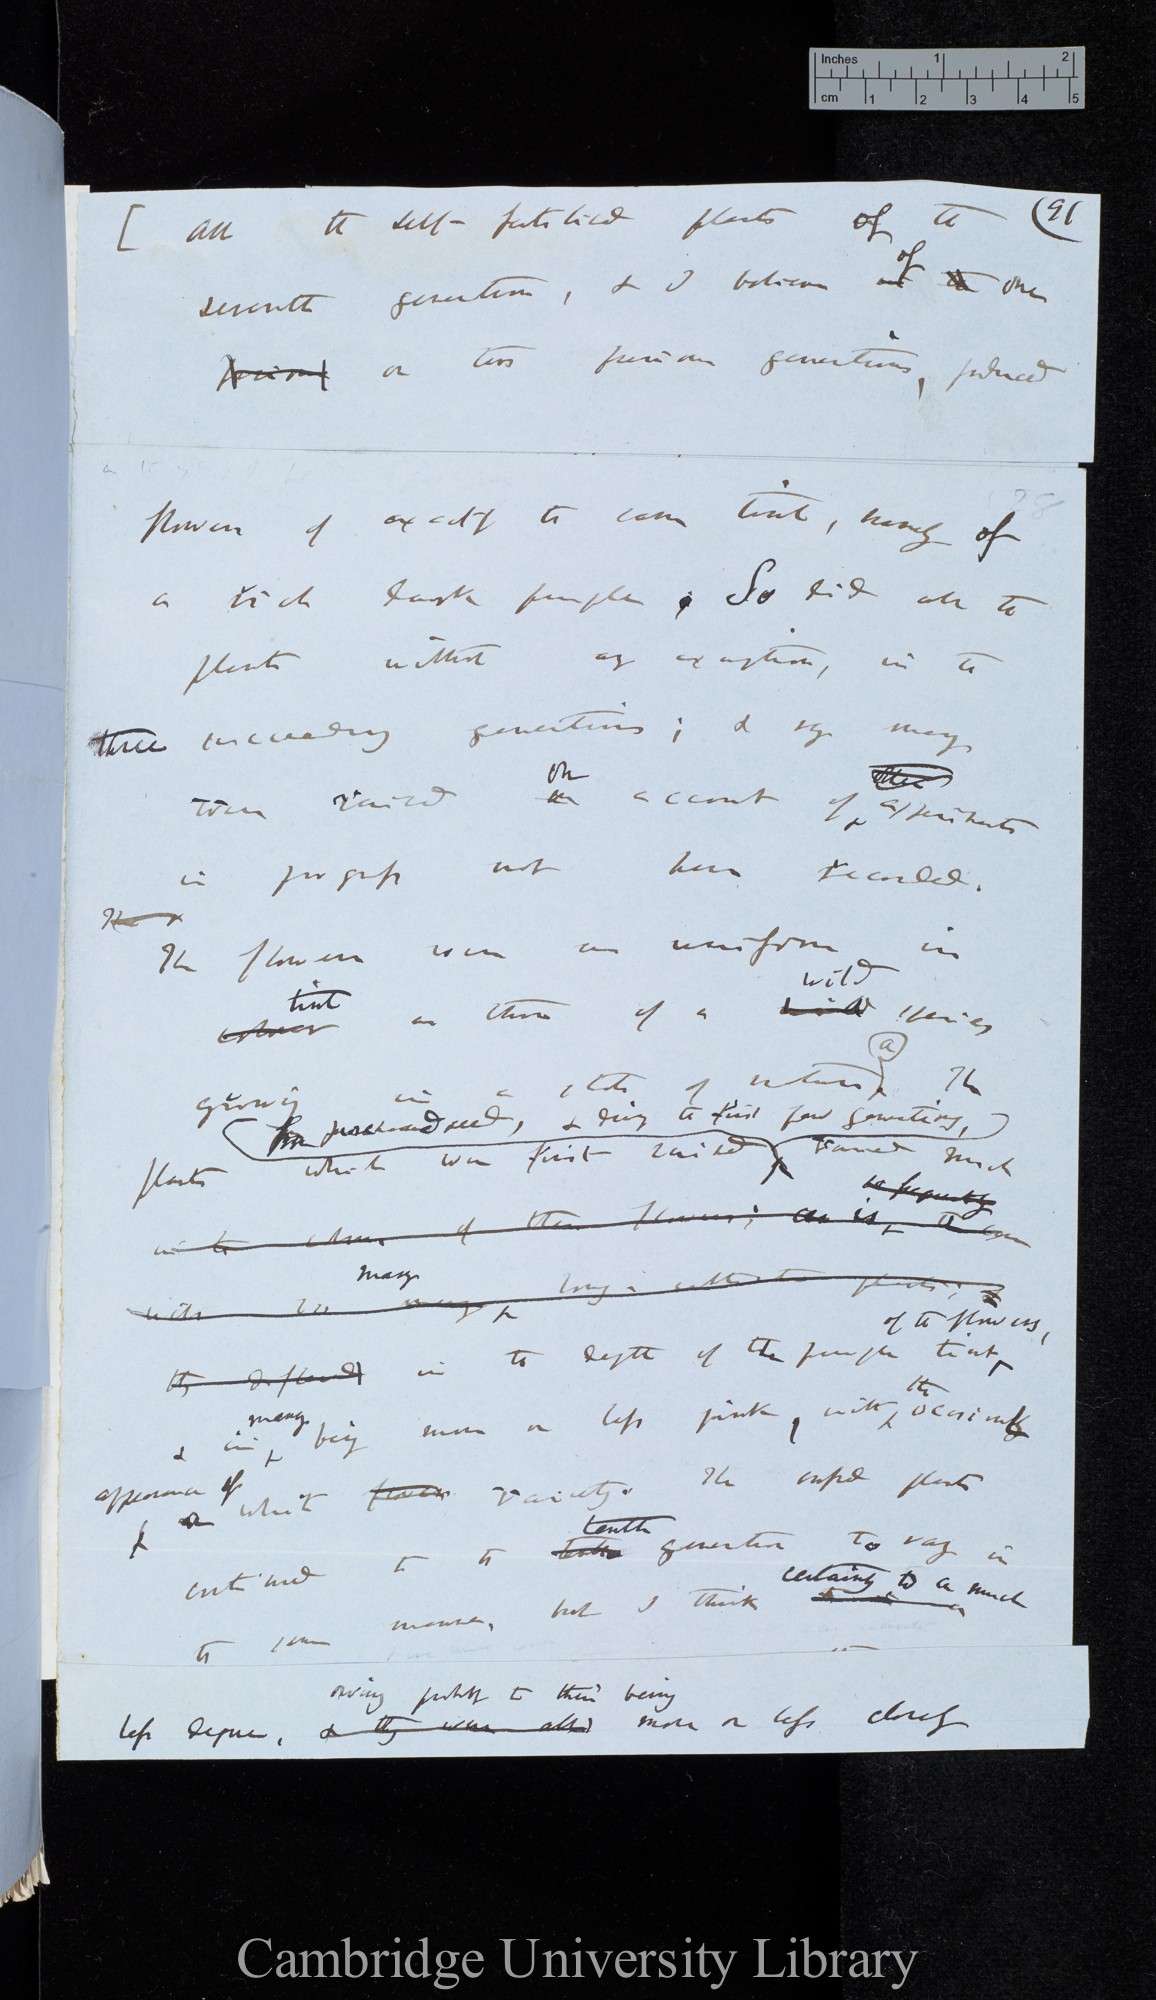 Inches 1 2
cm 1 2 3 4 5
(91
[ All the self-fertilised plants of the
seventh generation, & I believe of the one
previous or two previous generations, produced
flowers of exactly the same tint, namely of
a rich dark purple. So did all the
plants without any exception, in the
three succeeding generations; & very many
were raised on account of other experiments
in progress not here recorded.
The
The flowers were as uniform in
tint
colour as those of a wild species
growing in a state of nature (a) The
from purchased seed, & during the first few generations,
plants which were first raised varied much
so frequently
in the colour of their flowers; as is, the case
many
with long cultivated plants;
of the flowers,
in the depth of the purple tint
& in many being more or less pink, with the occasional
appearance of
a white flower variety. The crossed plants
continued to the tenth generation to vary in
the same manner, but I think certainly to a much
owing probably to their being
less degree, & they were all more or less closely
Cambridge University Library